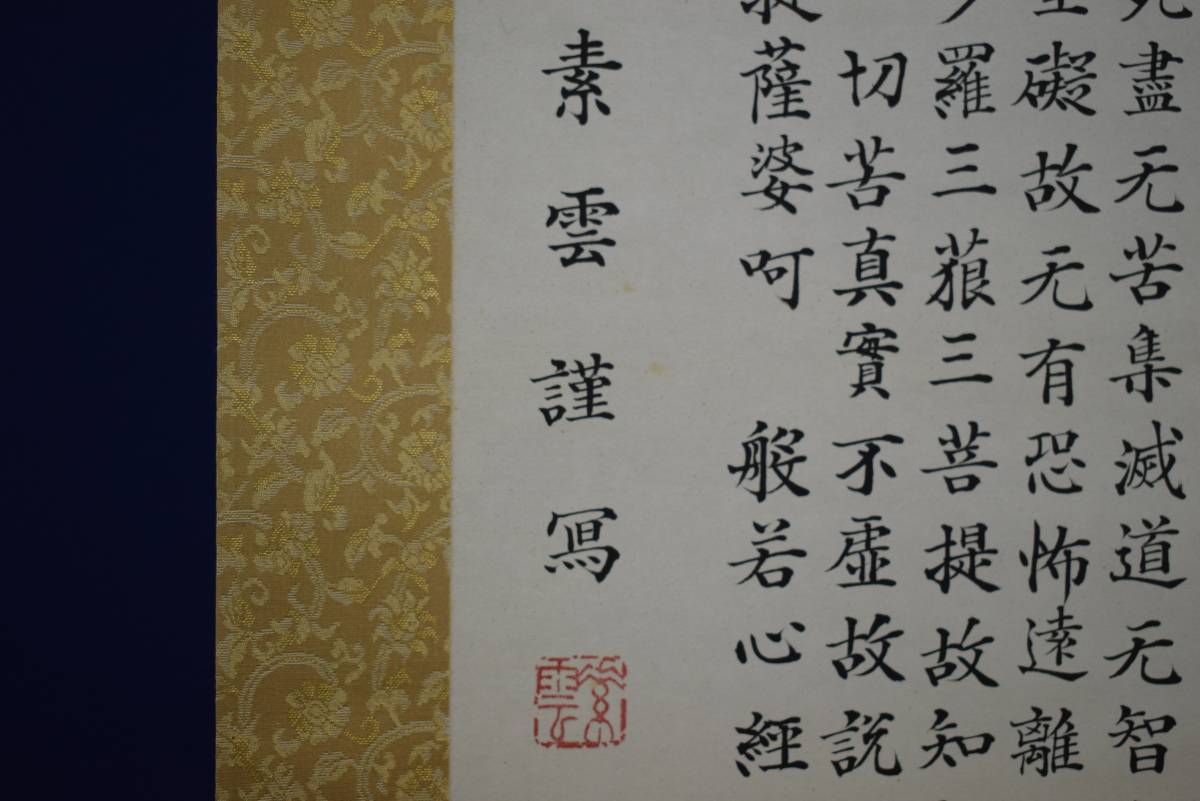 盡无苦集滅道无智
礙故无有恐怖遠離
羅三藐三菩提故知
切苦真實不虛故說
薩婆呵　般若心經
素雲謹寫
素雲